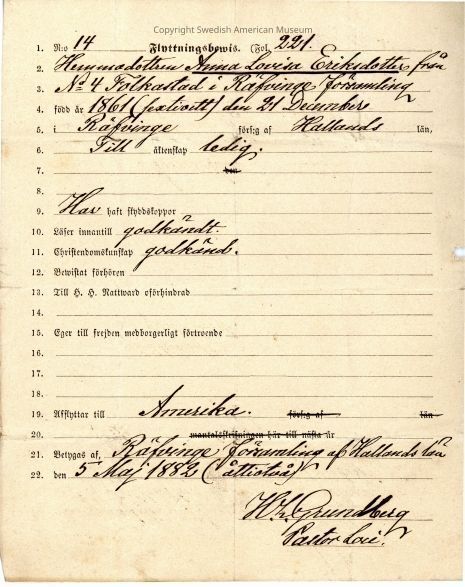 Copyright Swedish American Museum
1. N:o 14 Flyttningsbewis. Fol. 221.
2. Hemmadottren Anna Lovisa Eriksdotter från
3. No 4 Folkastad i Räfvinge församling
4. född år 1861 (sextioett) den 21 December
5. i Räfvinge förs:g af Hallands län,
6. Till äktenskap ledig.
7. den
8.
9. Har haft skyddskoppor
10. Läser innantill godkändt.
11. Christendomskunskap godkänd.
12. Bewistat förhören
13. Till H. H. Nattward oförhindrad
14.
15. Eger till frejden medborgerligt förtroende
16.
17.
18.
19. Afflyttar till Amerika. förs:g af län
20. mantalsskrifningen här till nästa år
21. Betygas af, Räfvinge församling af Hallands län
22. den 5 Maj 1882 (åttiotvå)
Grundberg
Pastor Loci.